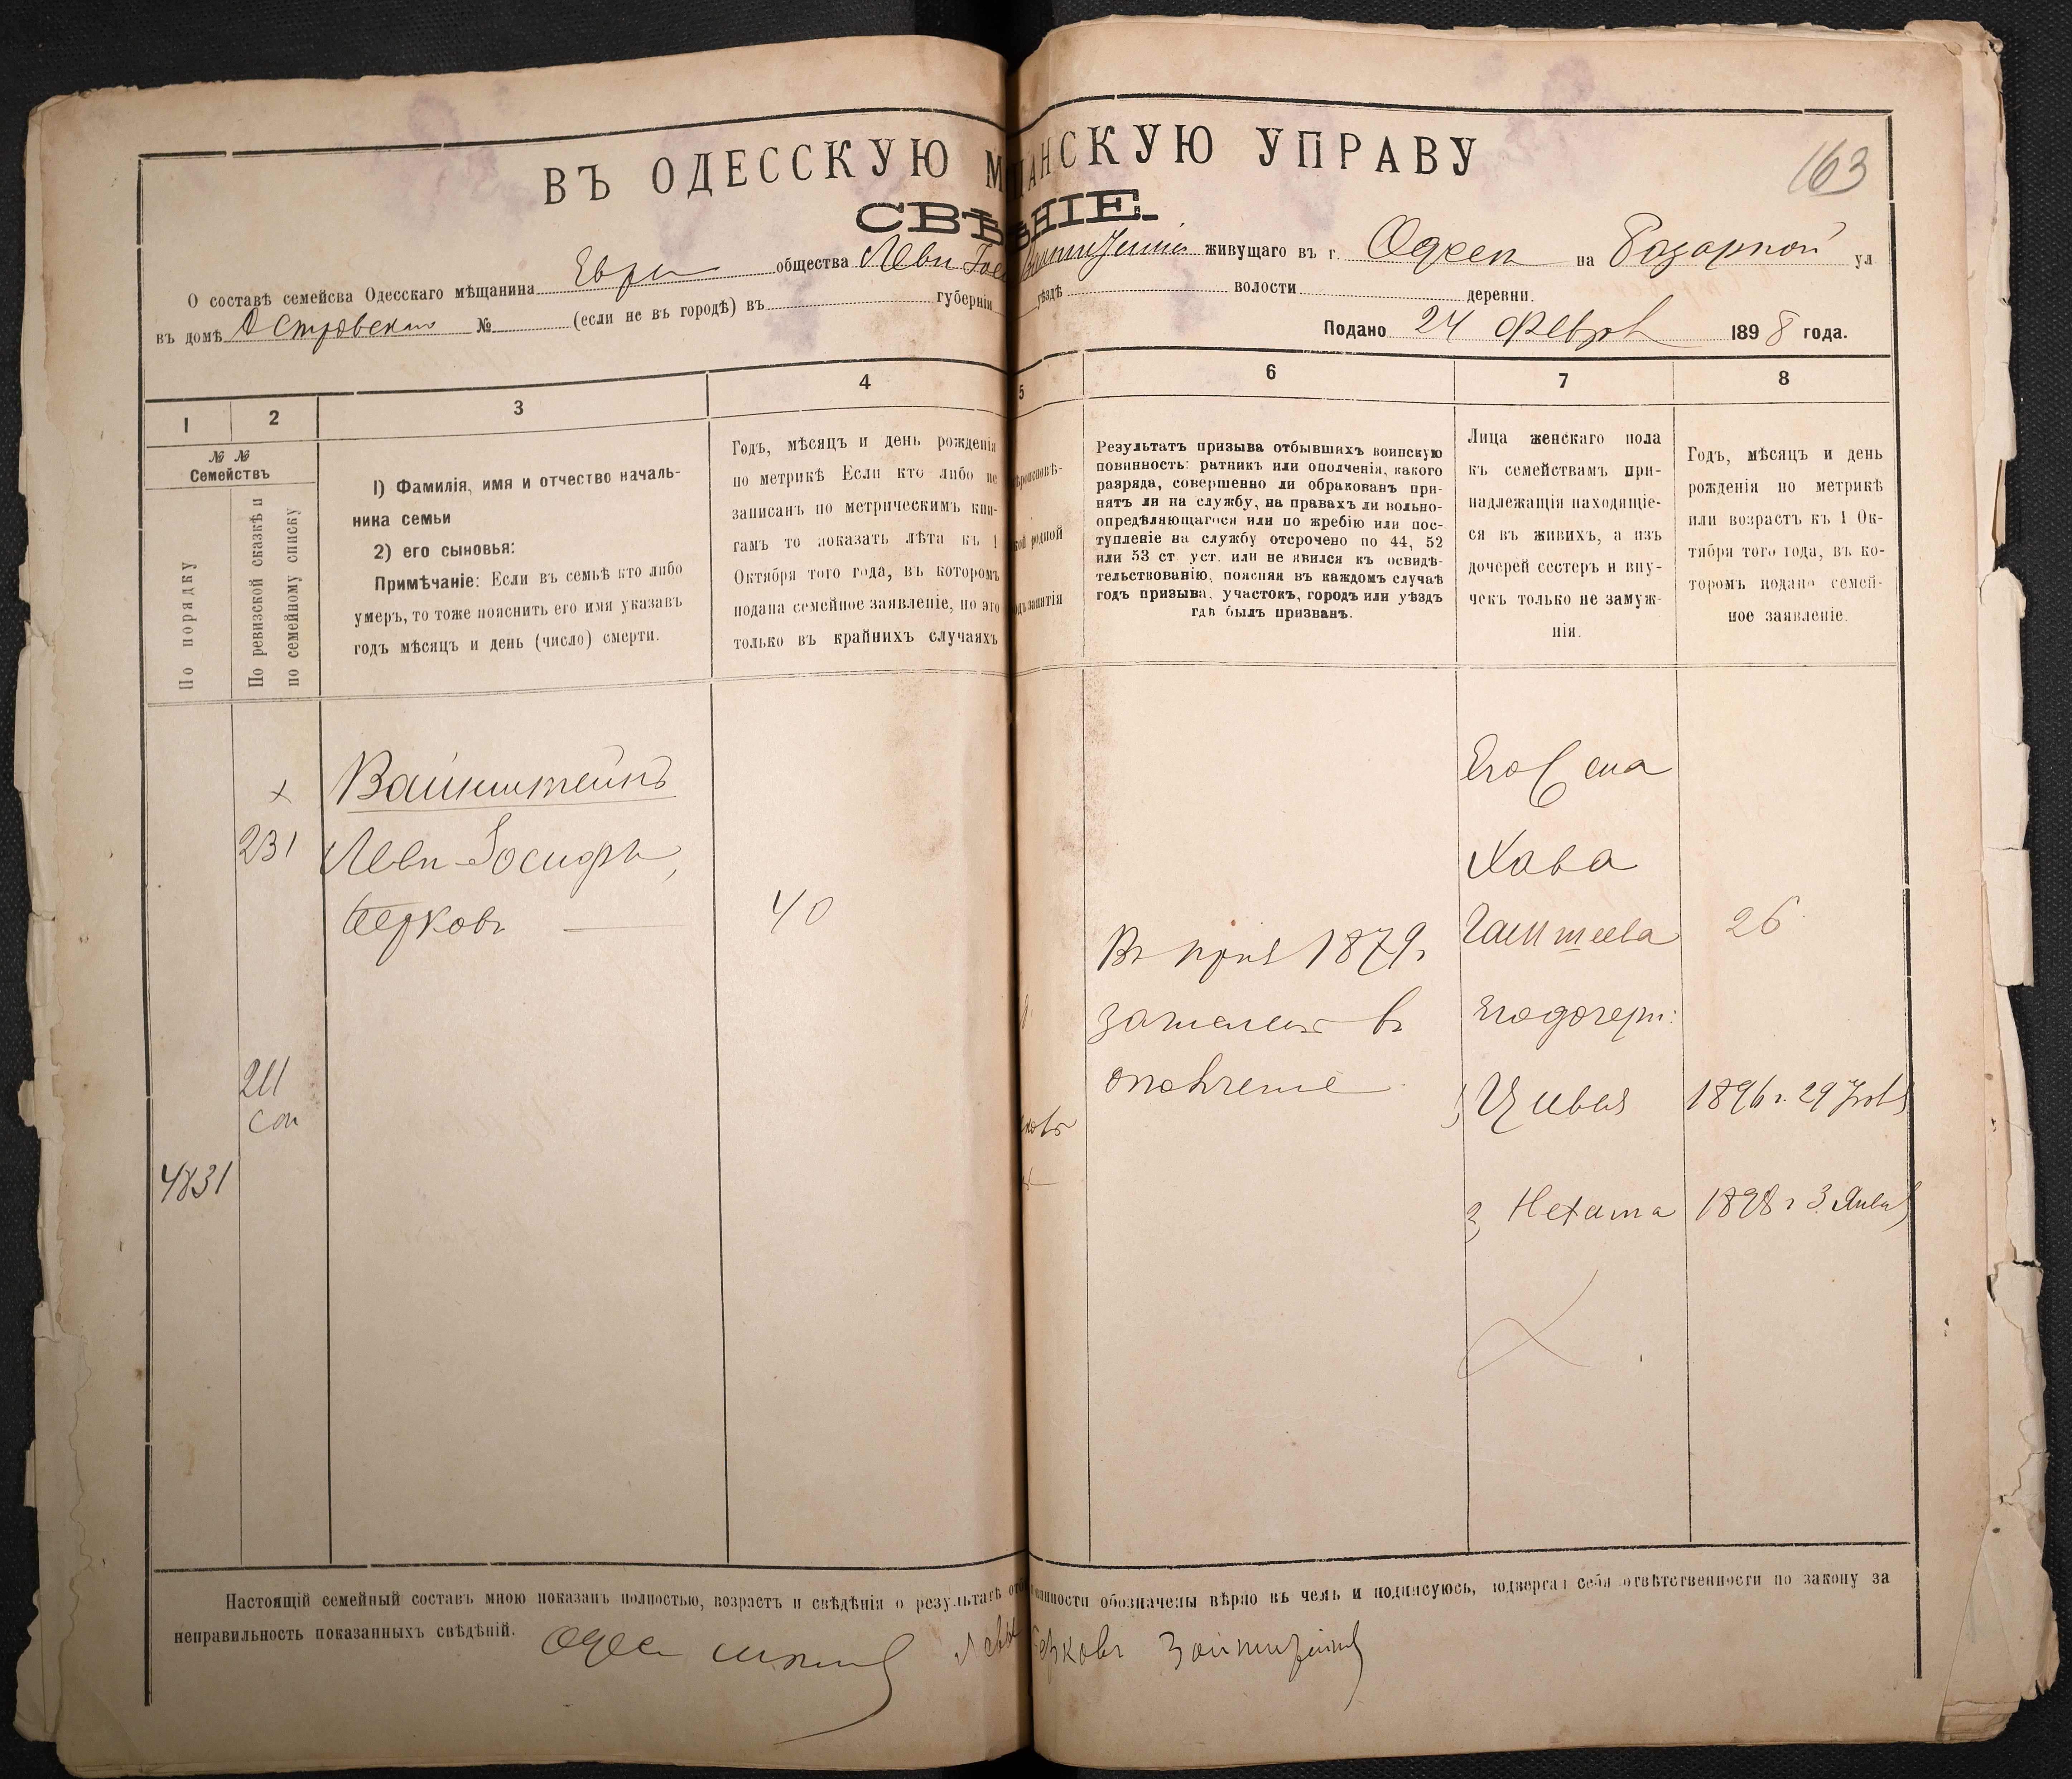 163
ВЪ ОДЕССКУЮ М ЩАНСКУЮ УПРАВУ
СВѢ ѢНІЕ.
О составѣ семейсва Одесскаго мѣщанина Евре общества Леви Іос живущаго въ г. Одесѣ на Базарной ул
въ домѣ Островскаго № (если не въ городѣ) въ губерніи уѣздѣ волости деревни.
Подано 24 Февр 1898 года.
1
2
3
4
5
6
7
8
№ №
Семействъ
По порядку
По ревизской сказкѣ и
по семейному списку
1) Фамилія, имя и отчество началь-
ника семьи
2) его сыновья:
Примѣчаніе: Если въ семьѣ кто либо
умеръ, то тоже пояснить его имя указавъ
годъ мѣсяцъ и день (число) смерти.
Годъ, мѣсяцъ и день рожденія
по метрикѣ Если кто либо не
записанъ по метрическимъ кни-
гамъ то показать лѣта къ 1
Октября того года, въ которомъ
подана семейное заявленіе, но это
только въ крайнихъ случаяхъ
вѣроисповѣ-
кой родной
одъ занятія
Результатъ призыва отбывшихъ воинскую
повинность: ратникъ или ополченія, какого
разряда, совершенно ли обракованъ при-
нятъ ли на службу, на правахъ ли вольно-
опредѣляющагося или по жребію или пос-
тупленіе на службу отсрочено по 44, 52
или 53 ст уст. или не явился къ освидѣ-
тельствованію, поясняя въ каждомъ случаѣ
годъ призыва, участокъ, городъ или уѣздъ
гдѣ былъ призванъ.
Лица женскаго пола
къ семействамъ при-
надлежащія находящіе-
ся въ живихъ, а изъ
дочерей сестеръ и вну-
чекъ только не замуж-
нія.
Годъ, мѣсяцъ и день
рожденія по метрикѣ
или возрастъ къ 1 Ок-
тября того года, въ ко-
торомъ подано семей-
ное заявленіе.
х
231
Вайнштейнъ
Леви-Іосифъ,
Берковъ
40
Въ приз 1879 г
зачислен въ
ополченіе
Его жена
Хава
26
Его дочери:
Цивья
1896 г. 29
2, Нехама
1898 г 3 Январ
211
4831
Настоящій семейный составъ мною показанъ полностью, возрастъ и свѣдѣнія о результатѣ от инности обозначены вѣрно въ чемъ и подписуюсь, подвергая себя отвѣтственности по закону за
неправильность показанныхъ свѣдѣній.
Одес Леви Берковъ